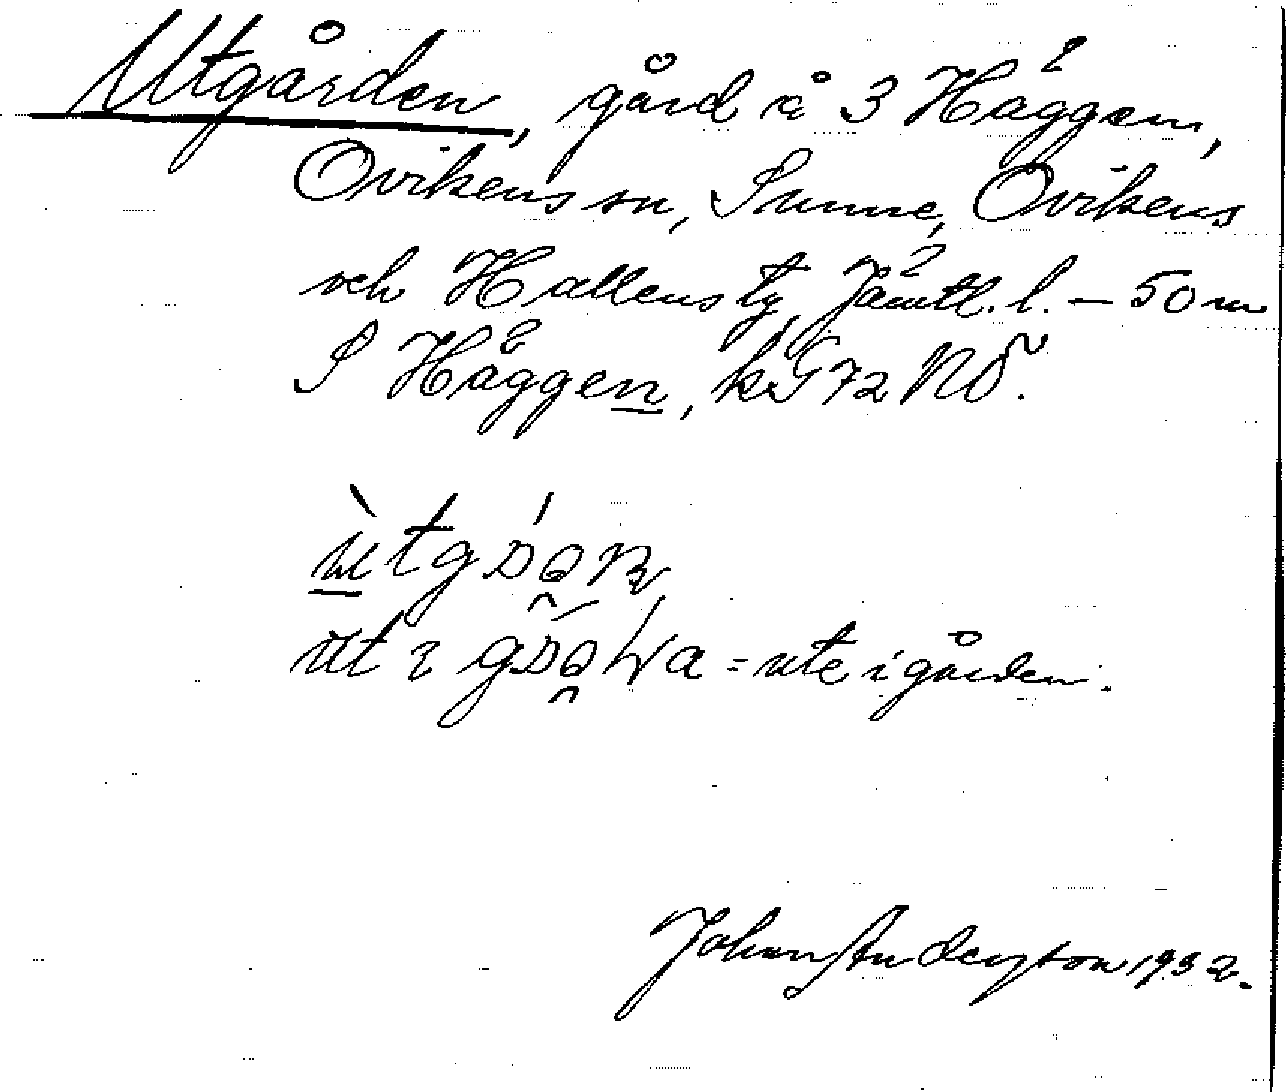 Utgården, gård å 3 Häggen,
Ovikens sn, Sunne, Ovikens
och Hallens tg, Jämtl. l. – 50 m
S Häggen, kG72 NÖ.
ùtgɒ́
ut i = ute i gården.
Johan Anderson 1932.